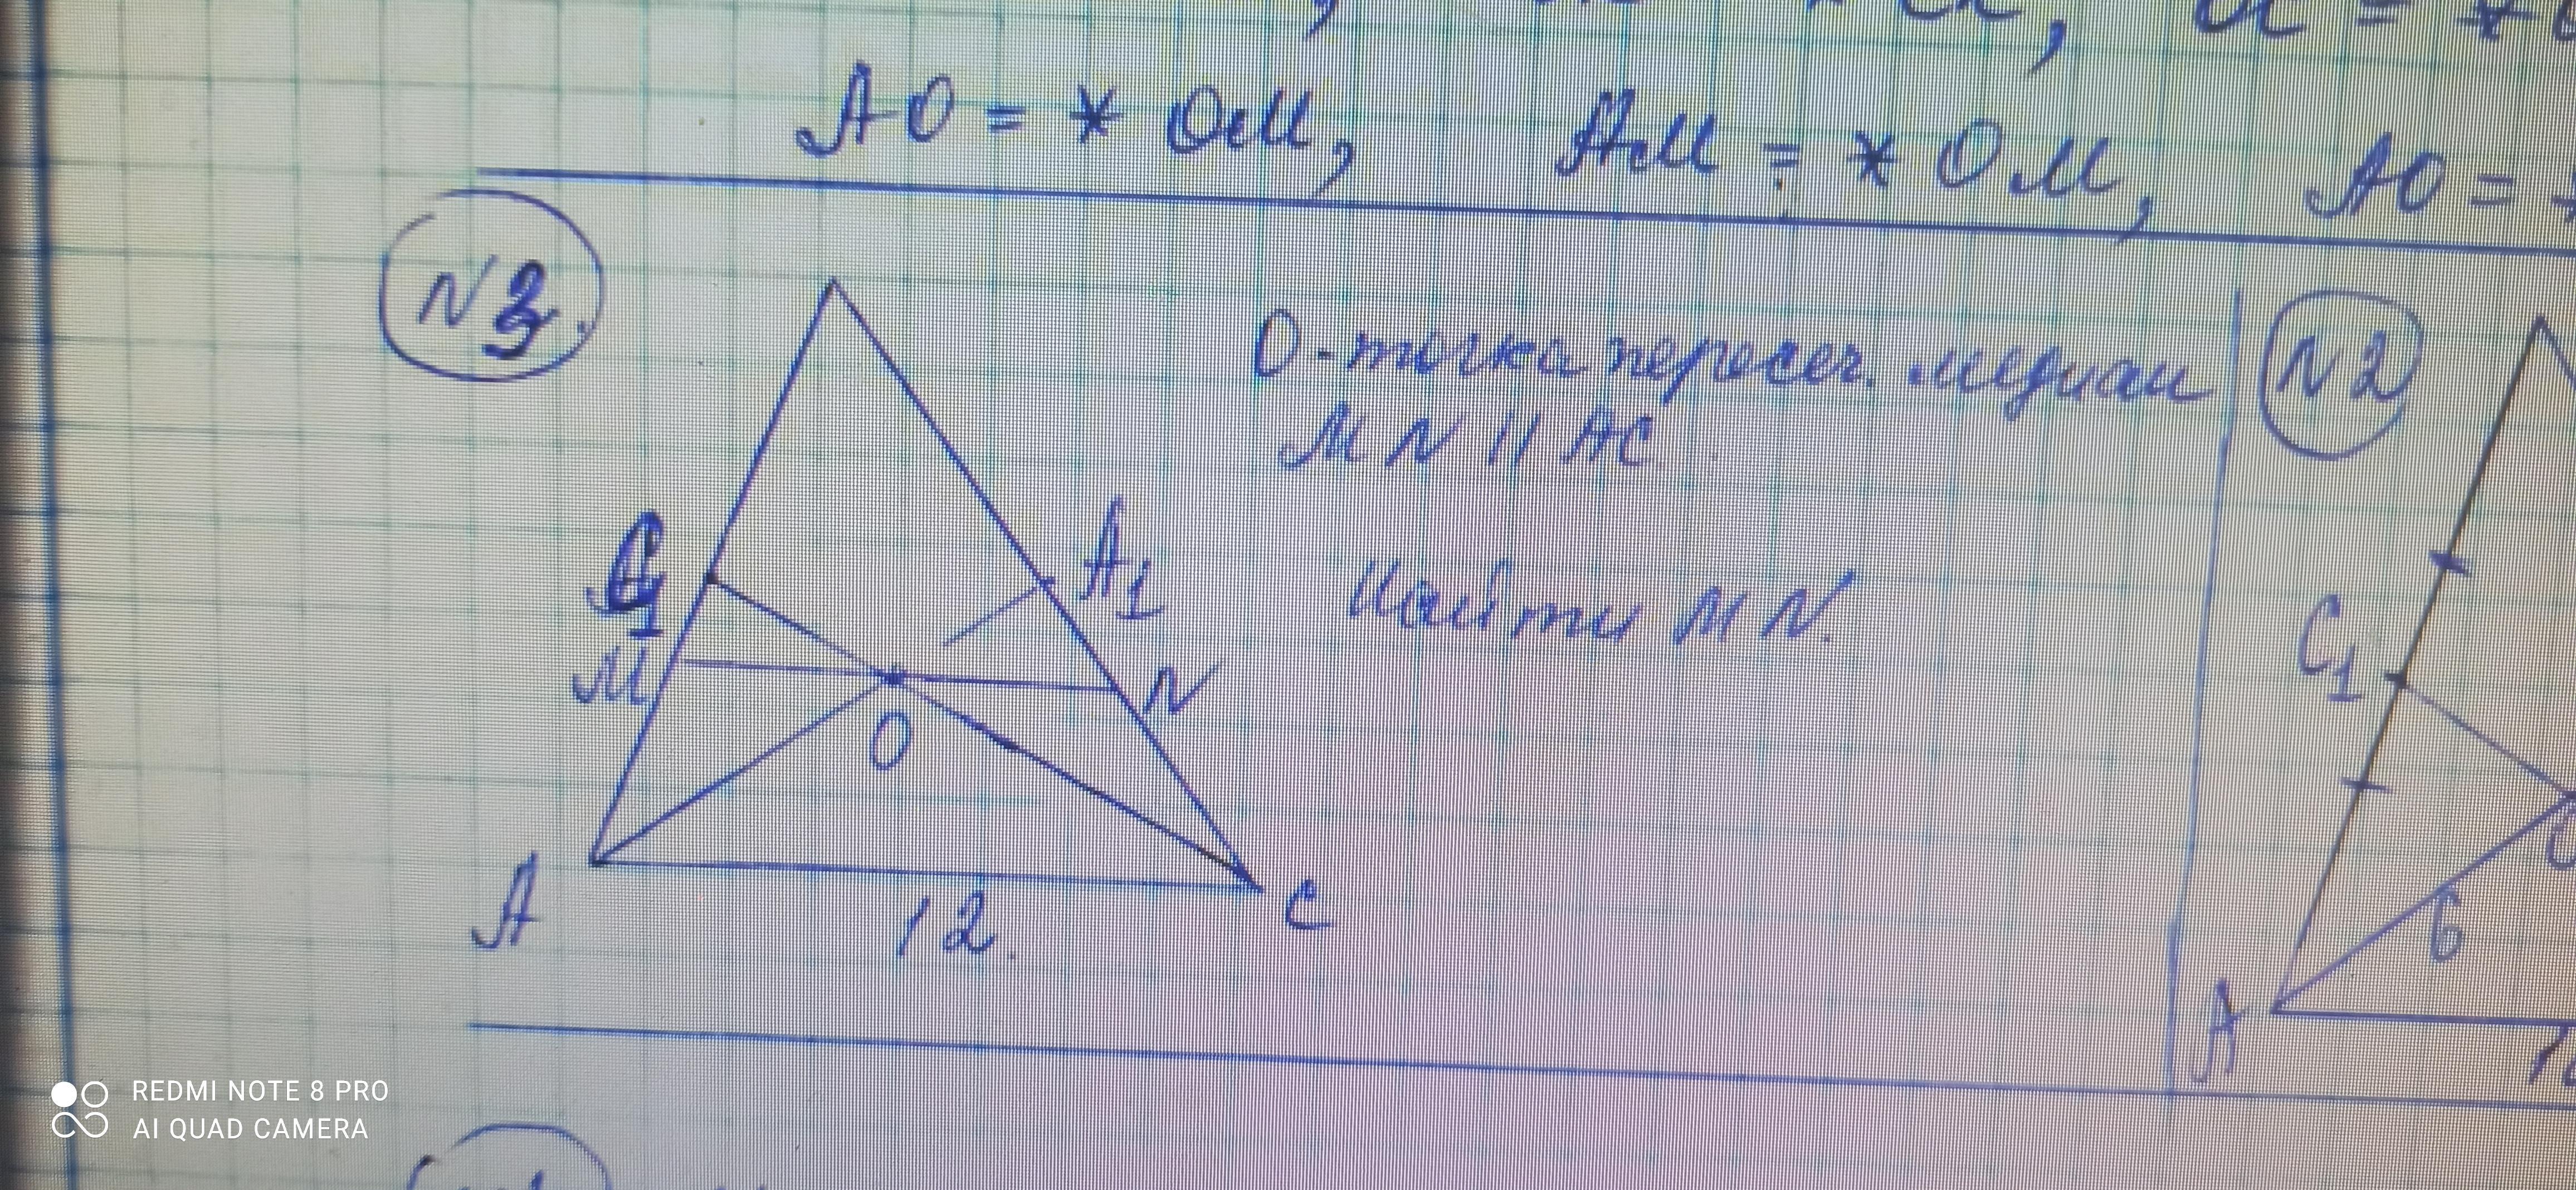 AO = * OM, AM = * OM, AO =
N3.
O - точка пересеч. медиан
MN || AC.
Найти MN.
C1
A1
M
N
O
A
C
12.
N2
C1
6
A
REDMI NOTE 8 PRO
AI QUAD CAMERA